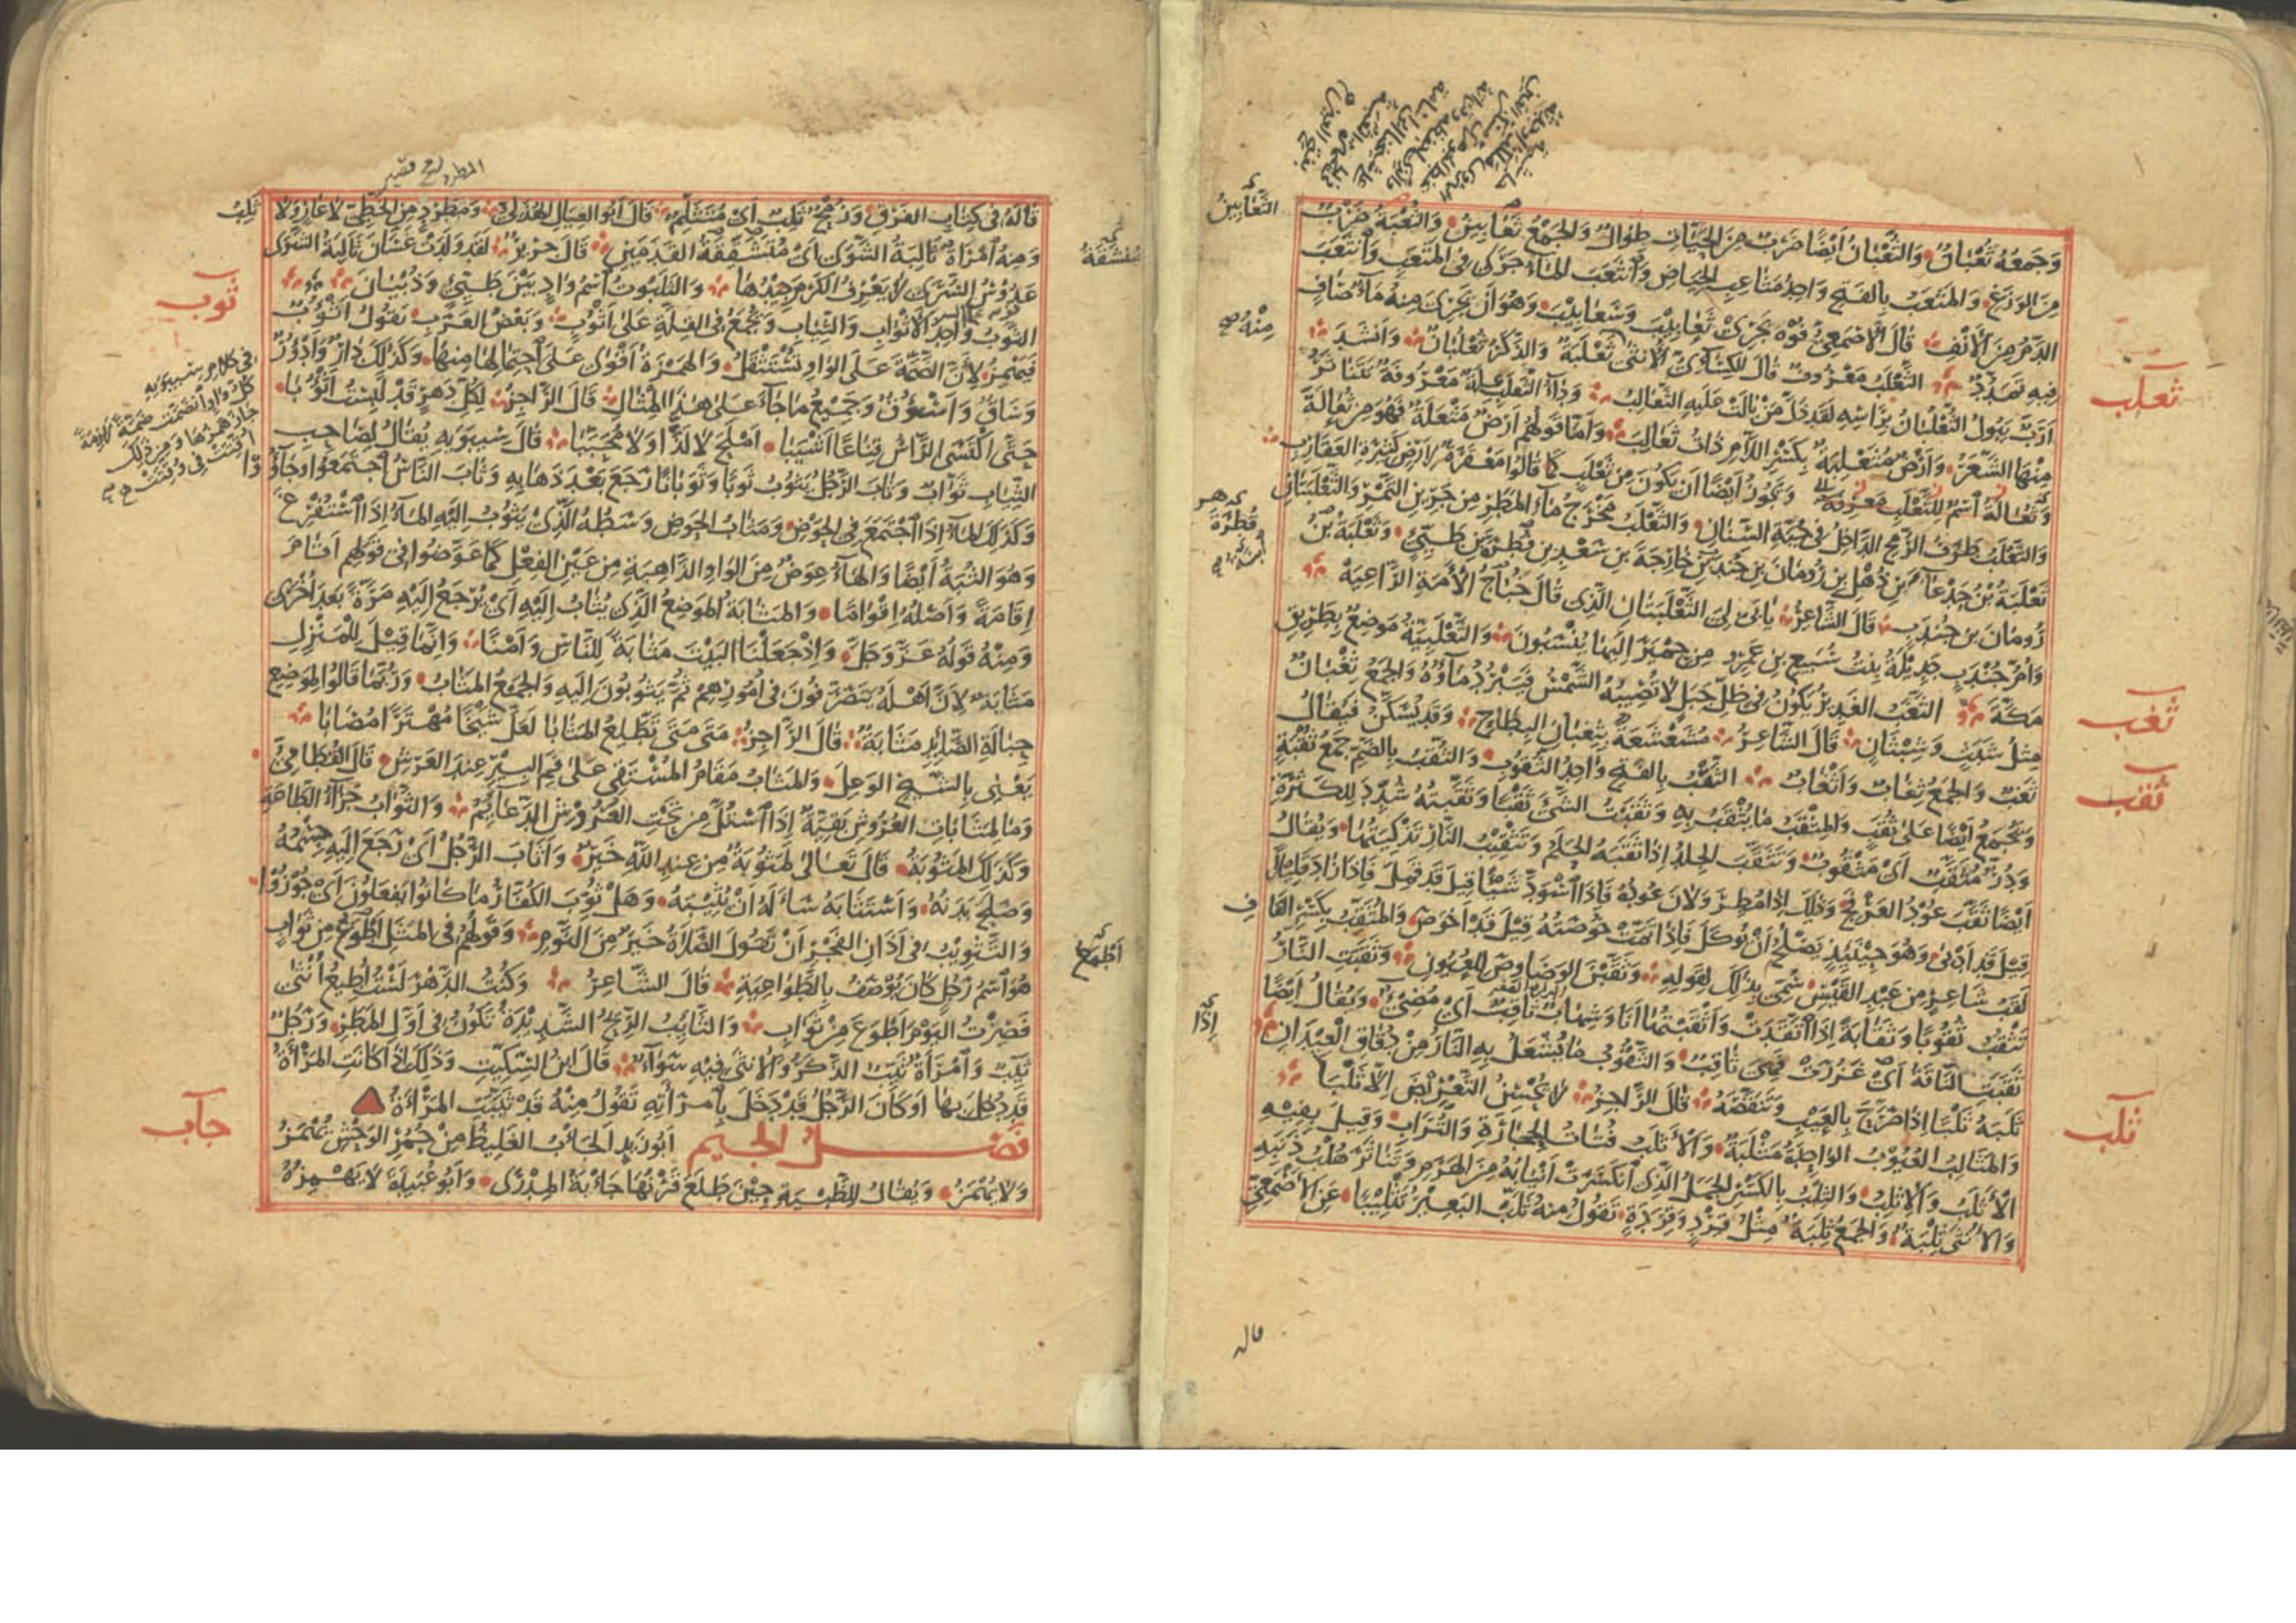 وَجَمْعُهُ ثُعْبَانٌ وَالثُّعْبَانُ أَيْضًا ضَرْبٌ مِنَ الْحَيَّاتِ طِوَالٌ وَالجَمْعُ ثَعَابِينُ وَالثُّعْبَةُ ضَرْبٌ
مِنَ الوَزَغِ وَالمَثْعَبُ بِالفَتْحِ وَاحِدُ مَثَاعِبِ الحِيَاضِ وَانْثَعَبَ المَاءُ جَرَى فِي المَثْعَبِ وَانْثَعَبَ
الدَّمُ مِنَ الأَنْفِ قَالَ الأَصْمَعِيُّ فُوهُ يَجْرِي ثَعَابِيبَ وَسَعَابِيبَ وَهُوَ أَنْ يَجْرِيَ مِنْهُ مَاءٌ صَافٍ
فِيهِ تَمَدُّدٌ الثَّعْلَبُ مَعْرُوفٌ قَالَ الكِسَائِيُّ الأُنْثَى ثَعْلَبَةٌ وَالذَّكَرُ ثُعْلُبَانٌ وَأَنْشَدَ
أَرَبٌّ يَبُولُ الثُّعْلُبَانُ بِرَأْسِهِ لَقَدْ ذَلَّ مَنْ بَالَتْ عَلَيْهِ الثَّعَالِبُ وَدَاءُ الثَّعْلَبِ عِلَّةٌ مَعْرُوفَةٌ يَتَنَاثَرُ
مِنْهَا الشَّعَرُ وَأَرْضٌ مُثَعْلِبَةٌ بِكَسْرِ اللَّامِ ذَاتُ ثَعَالِبَ وَأَمَّا قَوْلُهُمْ أَرْضٌ مَثْعَلَةٌ فَهُوَ مِنْ ثُعَالَةَ
وَثُعَالَةُ اسْمٌ لِلثَّعْلَبِ مَعْرِفَةٌ وَيَجُوزُ أَيْضًا أَنْ يَكُونَ مِنْ ثَعْلَبٍ كَمَا قَالُوا مَعْقَرَةٌ لِأَرْضٍ كَثِيرَةِ العَقَارِبِ
وَالثَّعْلَبُ طَرَفُ الرُّمْحِ الدَّاخِلُ فِي جُبَّةِ السِّنَانِ وَالثَّعْلَبُ مَخْرَجُ مَاءِ المَطَرِ مِنْ جَرِينِ التَّمْرِ وَالثَّعْلَبَتَانِ
ثَعْلَبَةُ بْنُ جَدْعَاءَ بْنِ ذُهْلِ بْنِ رُومَانَ بْنِ جُنْدَبِ بْنِ خَارِجَةَ بْنِ سَعْدِ بْنِ فُطْرَةَ بْنِ طَيِّئٍ وَثَعْلَبَةُ بْنُ
رُومَانَ بْنِ جُنْدَبٍ قَالَ الشَّاعِرُ يَأْبَى لِيَ الثَّعْلَبَتَانِ الَّذِي قَالَ خُبَاجُ الأَمَةِ الرَّاعِيَهْ
وَأُمُّ جُنْدَبٍ جَدِيلَةُ بِنْتُ سُبَيْعِ بْنِ عَمْرٍو مِنْ حِمْيَرَ إِلَيْهَا يُنْسَبُونَ وَالثَّعْلَبِيَّةُ مَوْضِعٌ بِطَرِيقِ
مَكَّةَ الثَّغَبُ الغَدِيرُ يَكُونُ فِي ظِلِّ جَبَلٍ لَا تُصِيبُهُ الشَّمْسُ فَيَبْرُدُ مَاؤُهُ وَالجَمْعُ ثِغْبَانٌ
مِثْلُ شَبَثٍ وَشِبْثَانٍ قَالَ الشَّاعِرُ مُشَعْشَعَةٌ بِثِغْبَانِ البِطَاحِ وَقَدْ يُسَكَّنُ فَيُقَالُ
ثَغْبٌ وَالجَمْعُ ثِغَابٌ وَأَثْغَابٌ الثَّقْبُ بِالفَتْحِ وَاحِدُ الثُّقُوبِ وَالثُّقْبُ بِالضَّمِّ جَمْعُ ثُقْبَةٍ
وَيُجْمَعُ أَيْضًا عَلَى ثُقَبٍ وَالمِثْقَبُ مَا يُثْقَبُ بِهِ وَثَقَبْتُ الشَّيْءَ ثَقْبًا وَثَقَّبْتُهُ شُدِّدَ لِلكَثْرَةِ
وَدُرٌّ مُثَقَّبٌ أَيْ مَثْقُوبٌ وَتَثَقَّبَ الجِلْدُ إِذَا ثَقَّبَهُ الحَلَمُ وَتَثْقِيبُ النَّارِ تَذْكِيَتُهَا وَيُقَالُ
أَيْضًا ثَقَّبَ عُودُ العَرْفَجِ وَذَلِكَ إِذَا مُطِرَ وَلَانَ عُودُهُ فَإِذَا اسْوَدَّ شَيْئًا قِيلَ قَدْ قَمِلَ فَإِذَا زَادَ قَلِيلًا
قِيلَ قَدْ أَدْبَى وَهُوَ حِينَئِذٍ يَصْلُحُ أَنْ يُؤْكَلَ فَإِذَا تَمَّتْ خُوصَتُهُ قِيلَ قَدْ أَخْوَصَ وَالمُثَقِّبُ بِكَسْرِ القَافِ
لَقَبُ شَاعِرٍ مِنْ عَبْدِ القَيْسِ سُمِّيَ بِذَلِكَ لِقَوْلِهِ وَثَقَّبْنَ الوَصَاوِصَ لِلْعُيُونِ وَثَقَبَتِ النَّارُ
تَثْقُبُ ثُقُوبًا وَثَقَابَةً إِذَا اتَّقَدَتْ وَأَثْقَبْتُهَا أَنَا وَشِهَابٌ ثَاقِبٌ أَيْ مُضِيءٌ وَيُقَالُ أَيْضًا
ثَقَبَتِ النَّاقَةُ أَيْ غَزُرَتْ فَهِيَ ثَاقِبٌ وَالثَّقُوبُ مَا يُشْعَلُ بِهِ النَّارُ مِنْ دُقَاقِ العِيدَانِ
ثَلَبَهُ ثَلْبًا إِذَا صَرَّحَ بِالعَيْبِ وَتَنَقَّصَهُ قَالَ الرَّاجِزُ لَا يُحْسِنُ التَّعْرِيضَ إِلَّا ثَلْبًا
وَالمَثَالِبُ العُيُوبُ الوَاحِدَةُ مَثْلَبَةٌ وَالأَثْلَبُ فُتَاتُ الحِجَارَةِ وَالتُّرَابِ وَقِيلَ بِفِيهِ
الأَثْلَبُ وَالإِثْلِبُ وَالثِّلْبُ بِالكَسْرِ الجَمَلُ الَّذِي انْكَسَرَتْ أَنْيَابُهُ مِنَ الهَرَمِ وَتَنَاثَرَ هُلْبُ ذَنَبِهِ
وَالأُنْثَى ثِلْبَةٌ وَالجَمْعُ ثِلَبَةٌ مِثْلُ قِرْدٍ وَقِرَدَةٍ تَقُولُ مِنْهُ ثَلَّبَ البَعِيرُ تَثْلِيبًا عَنِ الأَصْمَعِيِّ
الثَّعَابِينُ
مِنْهُ صح
قُطْرَةَ
إِذَا
ثعلب
ثغب
ثقب
ثلب
قاله
قَالَهُ فِي كِتَابِ الفَرْقِ وَرُمْحٌ ثَلِبٌ أَيْ مُتَثَلِّمٌ قَالَ أَبُو العِيَالِ الهُذَلِيُّ وَمُطَّرِدٌ مِنَ الخَطِّيِّ لَا عَارٍ وَلَا
ثَلِبُ
وَمِنْهُ امْرَأَةٌ ثَالِبَةُ الشَّوَى أَيْ مُتَشَقِّقَةُ القَدَمَيْنِ قَالَ جَرِيرٌ لَقَدْ وَلَدَتْ غَسَّانَ ثَالِبَةُ الشَّوَى
عَدُوسُ السُّرَى لَا يَعْرِفُ الكَرْمَ جِيدُهَا وَالثَّلَبُوتُ اسْمُ وَادٍ بَيْنَ طَيِّئٍ وَذُبْيَانَ
الثَّوْبُ وَاحِدُ الأَثْوَابِ وَالثِّيَابِ وَيُجْمَعُ فِي القِلَّةِ عَلَى أَثْوُبٍ وَبَعْضُ العَرَبِ يَقُولُ أَثْؤُبٌ
فَيَهْمِزُ لِأَنَّ الضَّمَّةَ عَلَى الوَاوِ تُسْتَثْقَلُ وَالهَمْزَةُ أَقْوَى عَلَى احْتِمَالِهَا مِنْهَا وَكَذَلِكَ دَارٌ وَأَدْؤُرٌ
وَسَاقٌ وَأَسْؤُقٌ وَجَمِيعُ مَا جَاءَ عَلَى هَذَا المِثَالِ قَالَ الرَّاجِزُ لِكُلِّ دَهْرٍ قَدْ لَبِسْتُ أَثْؤُبًا
حَتَّى اكْتَسَى الرَّأْسُ قِنَاعًا أَشْيَبًا أَمْلَحَ لَا لَذًّا وَلَا مُحَبَّبًا قَالَ سِيبَوَيْهِ يُقَالُ لِصَاحِبِ
الثِّيَابِ ثَوَّابٌ وَثَابَ الرَّجُلُ يَثُوبُ ثَوْبًا وَثَوَبَانًا رَجَعَ بَعْدَ ذَهَابِهِ وَثَابَ النَّاسُ اجْتَمَعُوا وَجَاؤُوا
وَكَذَلِكَ المَاءُ إِذَا اجْتَمَعَ فِي الحَوْضِ وَمَثَابُ الحَوْضِ وَسَطُهُ الَّذِي يَثُوبُ إِلَيْهِ المَاءُ إِذَا اسْتُفْرِغَ
وَهُوَ الثُّبَةُ أَيْضًا وَالهَاءُ عِوَضٌ مِنَ الوَاوِ الذَّاهِبَةِ مِنْ عَيْنِ الفِعْلِ كَمَا عَوَّضُوا فِي قَوْلِهِمْ أَقَامَ
إِقَامَةً وَأَصْلُهُ إِقْوَامًا وَالمَثَابَةُ المَوْضِعُ الَّذِي يُثَابُ إِلَيْهِ أَيْ يُرْجَعُ إِلَيْهِ مَرَّةً بَعْدَ أُخْرَى
وَمِنْهُ قَوْلُهُ عَزَّ وَجَلَّ وَإِذْ جَعَلْنَا البَيْتَ مَثَابَةً لِلنَّاسِ وَأَمْنًا وَإِنَّمَا قِيلَ لِلْمَنْزِلِ
مَثَابَةٌ لِأَنَّ أَهْلَهُ يَتَصَرَّفُونَ فِي أُمُورِهِمْ ثُمَّ يَثُوبُونَ إِلَيْهِ وَالجَمْعُ المَثَابُ وَرُبَّمَا قَالُوا لِمَوْضِعِ
حِبَالَةِ الصَّائِدِ مَثَابَةٌ قَالَ الرَّاجِزُ مَتَى مَتَى تُطَّلَعُ المَثَابَا لَعَلَّ شَيْخًا مُهْتَرًا مُصَابَا
يَعْنِي بِالشَّيْخِ الوَعِلَ وَالمَثَابُ مَقَامُ المُسْتَقِي عَلَى فَمِ البِئْرِ عِنْدَ العَرْشِ قَالَ القُطَامِيُّ
وَمَا لِمَثَابَاتِ العُرُوشِ بَقِيَّةٌ إِذَا اسْتُلَّ مِنْ تَحْتِ العُرُوشِ الدَّعَائِمُ وَالثَّوَابُ جَزَاءُ الطَّاعَةِ
وَكَذَلِكَ المَثُوبَةُ قَالَ تَعَالَى لَمَثُوبَةٌ مِنْ عِنْدِ اللَّهِ خَيْرٌ وَأَثَابَ الرَّجُلُ أَيْ رَجَعَ إِلَيْهِ جِسْمُهُ
وَصَلَحَ بَدَنُهُ وَاسْتَثَابَهُ سَأَلَهُ أَنْ يُثِيبَهُ وَهَلْ ثُوِّبَ الكُفَّارُ مَا كَانُوا يَفْعَلُونَ أَيْ جُوزُوا
وَالتَّثْوِيبُ فِي أَذَانِ الفَجْرِ أَنْ تَقُولَ الصَّلَاةُ خَيْرٌ مِنَ النَّوْمِ وَقَوْلُهُمْ فِي المَثَلِ أَطْوَعُ مِنْ ثَوَابٍ
هُوَ اسْمُ رَجُلٍ كَانَ يُوصَفُ بِالطَّوَاعِيَةِ قَالَ الشَّاعِرُ وَكُنْتُ الدَّهْرَ لَسْتُ أُطِيعُ أُنْثَى
فَصِرْتُ اليَوْمَ أَطْوَعَ مِنْ ثَوَابِ وَالثَّائِبُ الرِّيحُ الشَّدِيدَةُ تَكُونُ فِي أَوَّلِ المَطَرِ وَرَجُلٌ
ثَيِّبٌ وَامْرَأَةٌ ثَيِّبٌ الذَّكَرُ وَالأُنْثَى فِيهِ سَوَاءٌ قَالَ ابْنُ السِّكِّيتِ وَذَلِكَ إِذَا كَانَتِ المَرْأَةُ
قَدْ دُخِلَ بِهَا أَوْ كَانَ الرَّجُلُ قَدْ دَخَلَ بِامْرَأَتِهِ تَقُولُ مِنْهُ قَدْ ثُيِّبَتِ المَرْأَةُ
فصل الجيم أَبُو زَيْدٍ الجَأْبُ الغَلِيظُ مِنْ حُمُرِ الوَحْشِ يُهْمَزُ
وَلَا يُهْمَزُ وَيُقَالُ لِلظَّبْيَةِ حِينَ طَلَعَ قَرْنُهَا جَأْبَةُ المِدْرَى وَأَبُو عُبَيْدَةَ لَا يَهْمِزُهُ
ثوب
في كلام سيبويه
كل واو انضمت ضمة لازمة
جاز همزها ومن ذلك
أقتت في وقتت
جأب